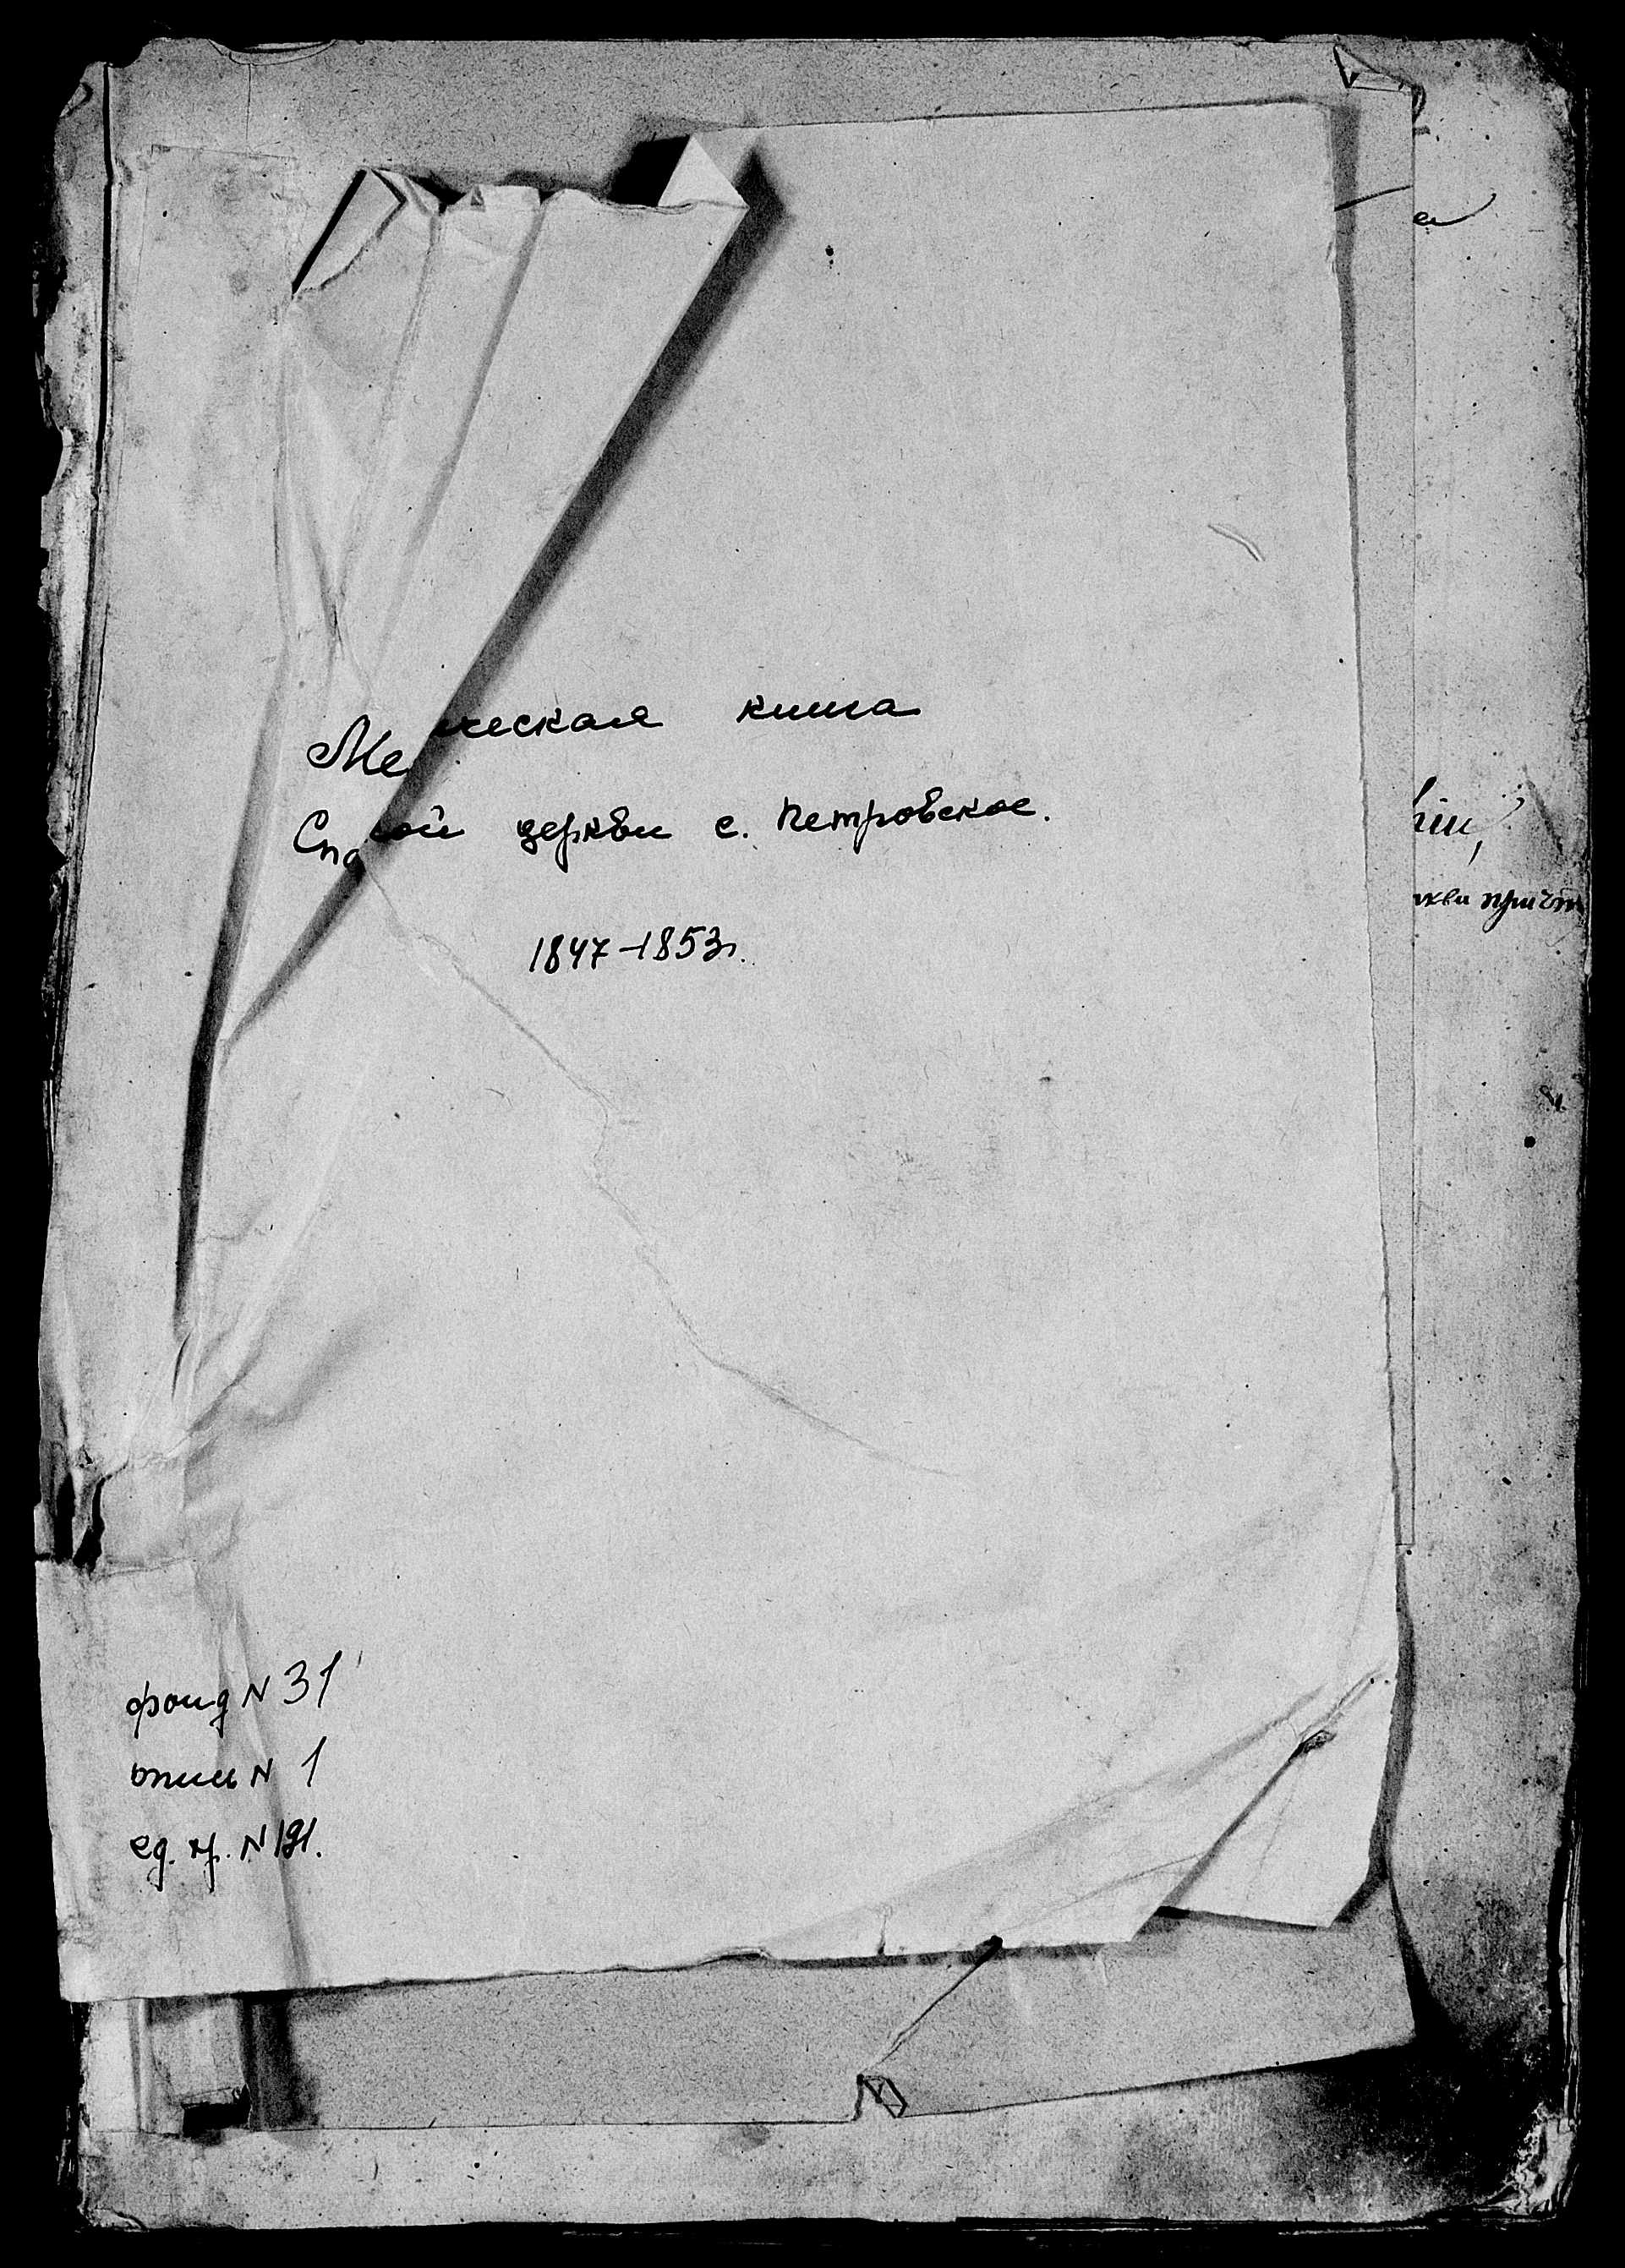 Ме ическая книга
Спа кой церкви с. Петровское.
1847-1853г.
фонд N 31
опись N 1
ед. хр. N 191.
ркви причт